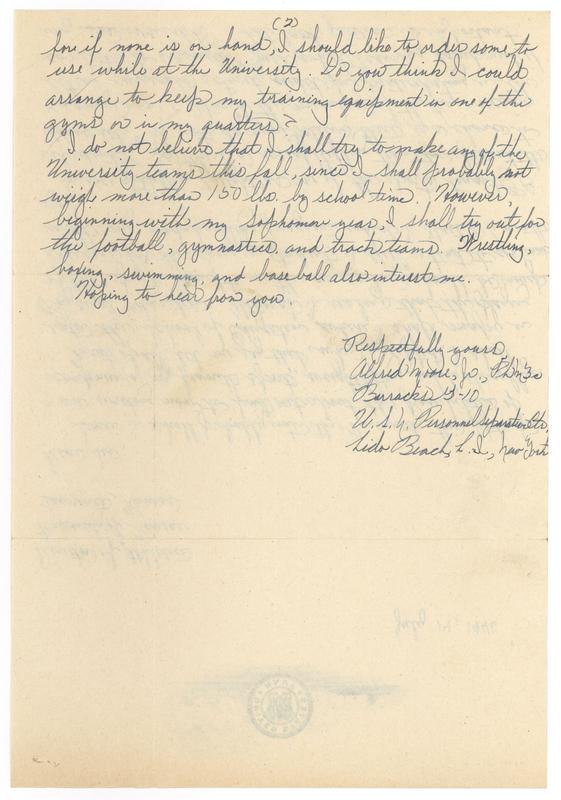 (2)
fore if none is on hand, I should like to order some, to
use while at the University. Do you think I could
arrange to keep my training equipment in one of the
gyms or in my quarters?
I do not believe that I shall try to make any of the
University teams this fall, since I shall probably not
weigh more than 150 lbs. by school time. However,
beginning with my sophomore year, I shall try out for
the football, gymnastics, and track teams. Wrestling,
boxing, swimming, and baseball also interest me.
Hoping to hear from you.
Respectfully yours,
Alfred Moore, Jr.,
Barracks G-10
U.S.N. Personnel Separation Ctr.
Lido Beach, L.I., New York